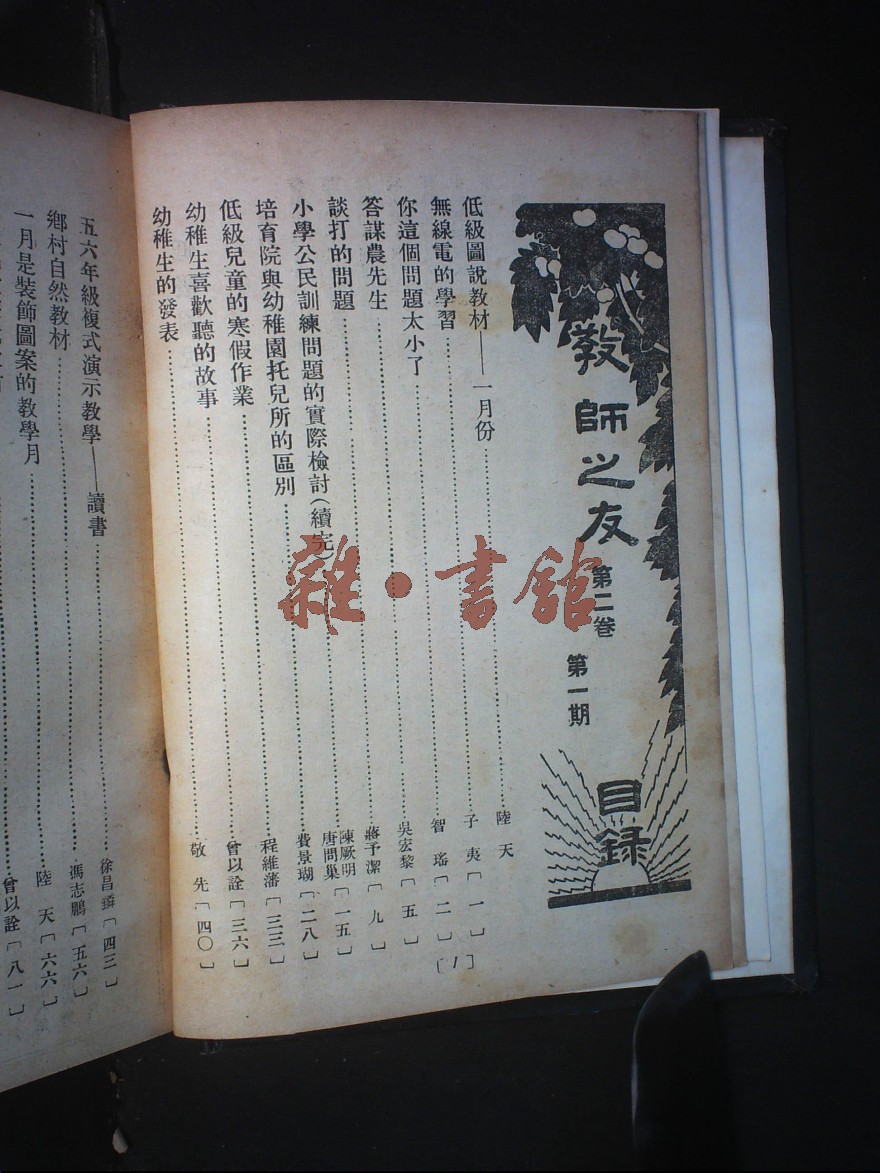 教師之友
第二卷 第一期
目錄
低級圖說教材——一月份 陸天
無線電的學習 子夷〔一〕
你這個問題太小了 智瑤〔二〕
答謀農先生 吳宏黎〔五〕
談打的問題 蔣予潔〔九〕
小學公民訓練問題的實際檢討(續完) 陳厥明 唐問巢〔一五〕
培育院與幼稚園托兒所的區別 費景瑚〔二八〕
低級兒童的寒假作業 程維藩〔三三〕
幼稚生喜歡聽的故事 曾以詮〔三六〕
幼稚生的發表 敬先〔四〇〕
〔1〕
五六年級複式演示教學——讀書 徐昌〔四三〕
鄉村自然教材 馮志鵬〔五六〕
一月是裝飾圖案的教學月 陸天〔六六〕
曾以詮〔八一〕
雜·書館